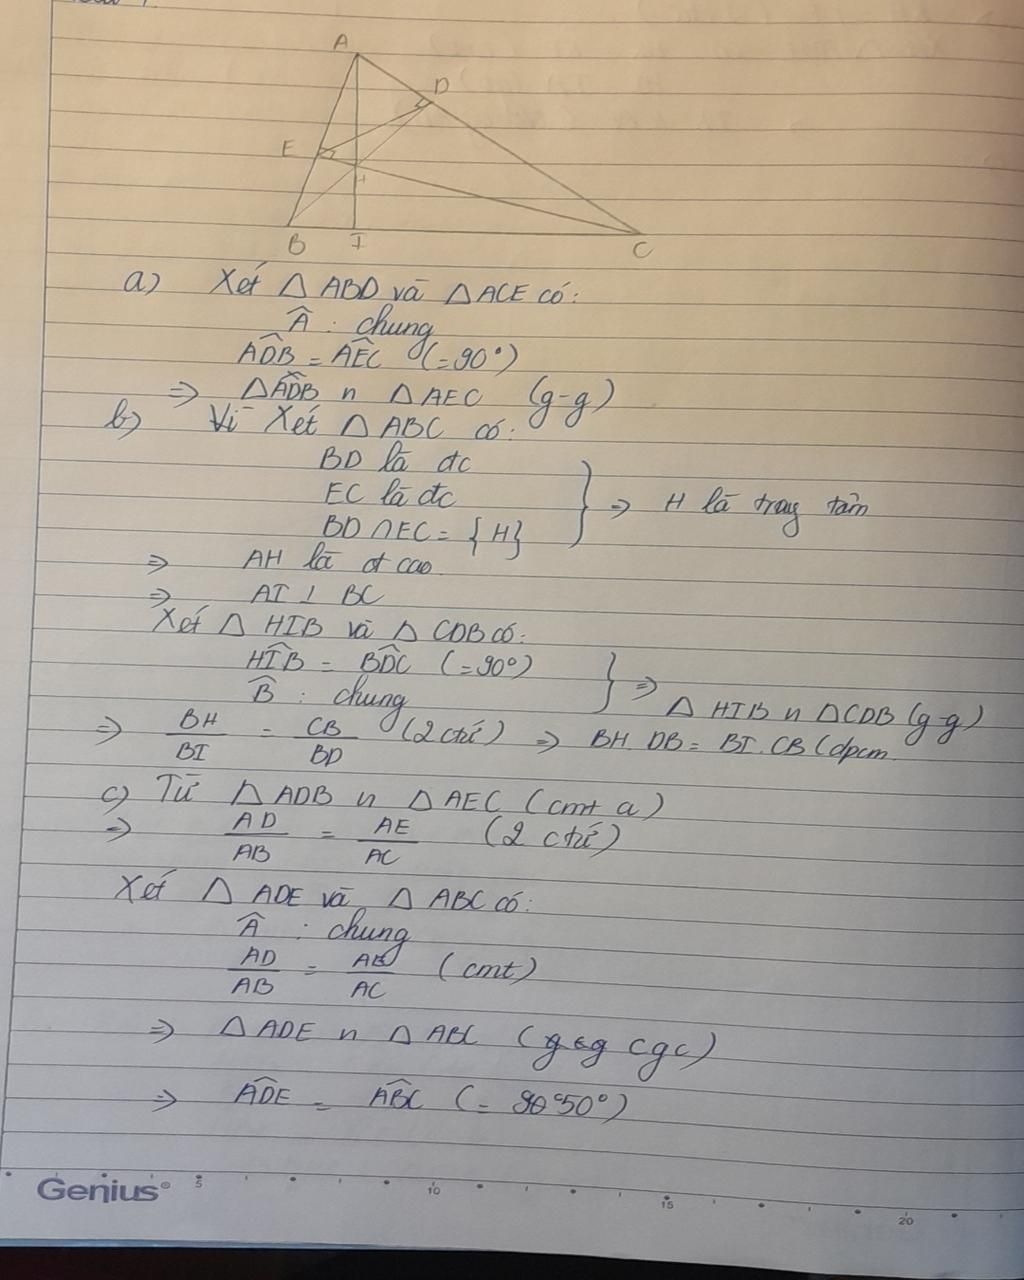 A
D
E
H
B I C
a) Xét △ ABD và △ ACE có:
Â : chung
ADB̂ = AEĈ (= 90°)
⇒ △ ADB ∽ △ AEC (g-g)
b) Vì Xét △ ABC có:
BD là đc
EC là đc
BD ∩ EC = {H}
⇒ H là trọng tâm
⇒ AH là đ cao
⇒ AI ⊥ BC
Xét △ HIB và △ CDB có:
HIB̂ = BDĈ (= 90°)
B̂ : chung
⇒ △ HIB ∽ △ CDB (g-g)
⇒ BH/BI = CB/BD (2 ctứ) ⇒ BH. DB = BI. CB (dpcm
c) Từ △ ADB ∽ △ AEC (cmt a)
⇒ AD/AB = AE/AC (2 ctứ)
Xét △ ADE và △ ABC có:
Â : chung
AD/AB = AE/AC (cmt)
⇒ △ ADE ∽ △ ABC (cgc)
⇒ ADÊ = ABĈ (= 50°)
Genius®
5 10 15 20